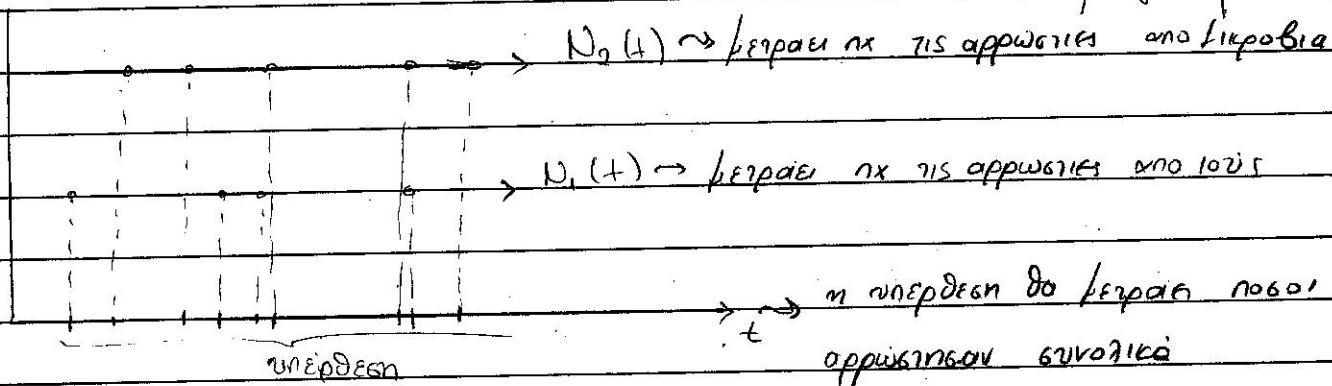 N₂(t) ⇝ μετράει πχ τις αρρώστιες απο μικρόβια
N₁(t) → μετράει πχ τις αρρώστιες απο ιούς
t ⇝ η υπέρθεση θα μετράει πόσοι
υπέρθεση
αρρώστησαν συνολικά